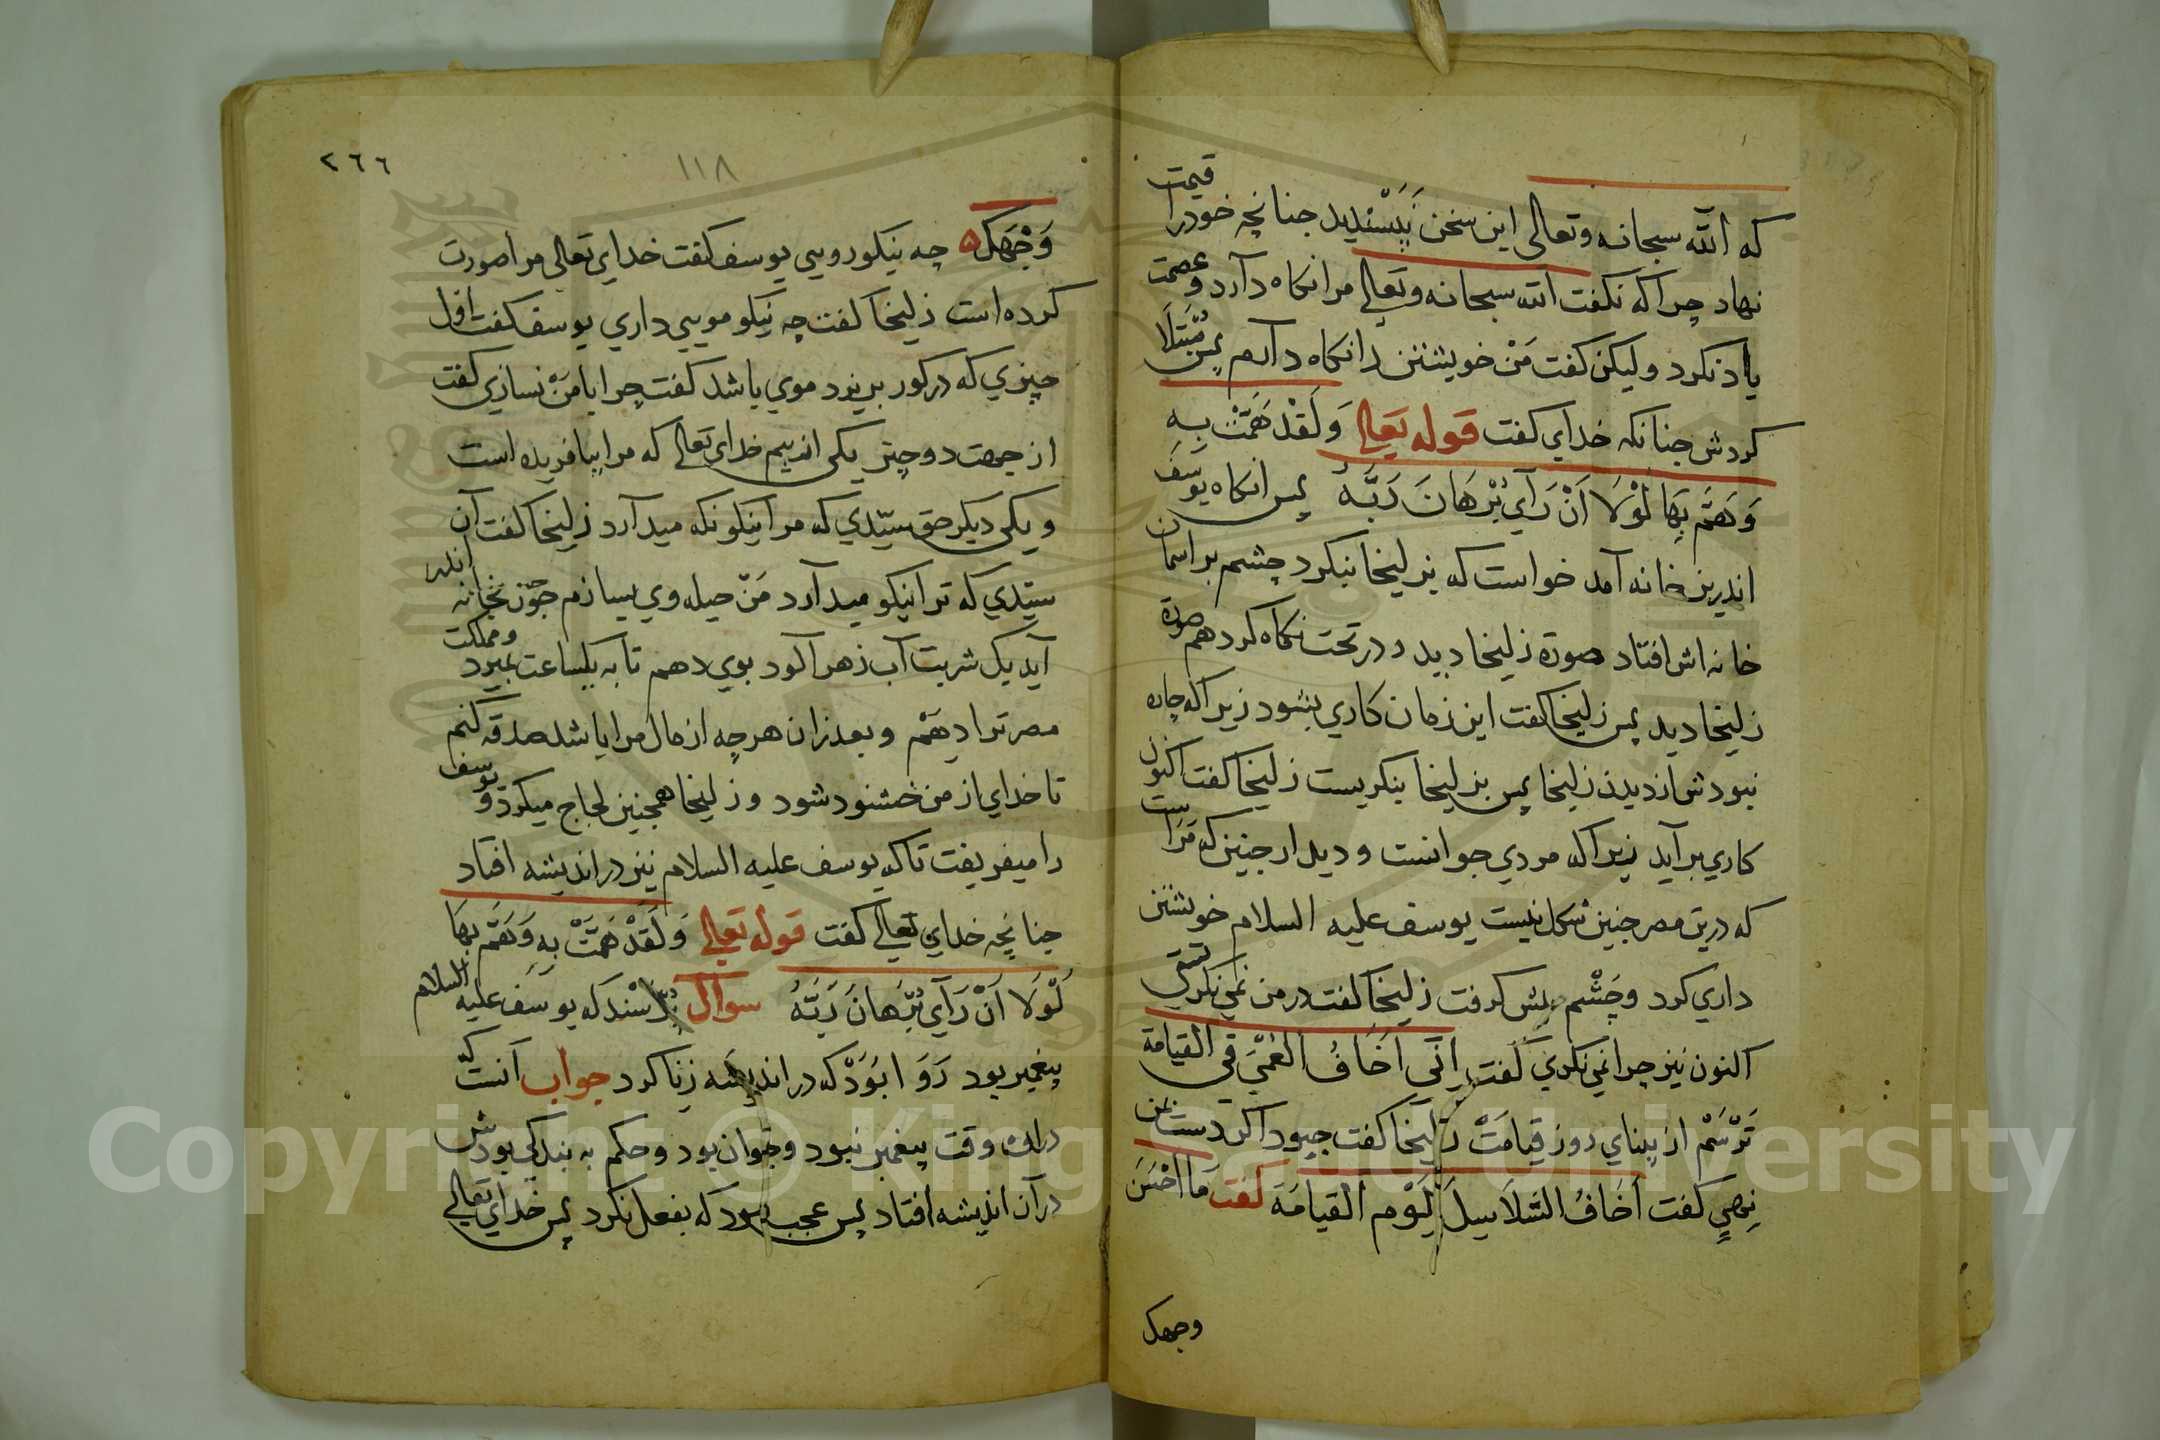 که الله سبحانه وتعالی این سخن نپسندید جنانچه خودرا قیمت
نهاد چراکه نکفت الله سبحانه وتعالی مرا نکاه دآرد وعصمت
یاد نکرد ولیکن کفت مَنْ خویشتن را نکاه دآرم پس مُبْتَلَا
کردش جنانکه خدای کفت قوله تعالی وَلَقَدْ هَمَّتْ بِهِ
وَهَمَّ بِهَا لَوْلَا اَنْ رَآي بُرْهَانَ رَبِّهُ پس انکاه یوسف
اندرین خانه آمد خواست که بزلیخا بنکرد چشم بر اسمان
خانه اش افتاد صورة زلیخا دید ودر تحت نکاه کرد هم صورة
زلیخا دید پس زلیخا کفت این زمان کاري بشود زیراکه چاره
نبودش از دیدن زلیخا پس بزلیخا بنکریست زلیخا کفت اکنون
کاري برآید زیراکه مردي جوانست ودیدار جنین که مَرَاست
که درین مصر جنین شکل نیست یوسف علیه السلام خویشتن
داري کرد وچَشْم پیش کرفت زلیخا کفت در من نمي نکري
اکنون نیز چرا نمي نکري کفت اِنِّي اَخَافُ العُمْيَ فِي القیامة
تَرْسَمْ از بیناي روز قیامَتْ زلیخا کفت جبود اکر دست بمن
نهي کفت اَخَافُ السَّلَاسِلَ یَوْم القیامَة کفت مَا اَحْسَنَ
وجهك
٢٦٦
١١٨
وَجْهَكَ چه نیکو رویي یوسف کفت خداي تعالی مرا صورت
کرده است زلیخا کفت چه نیکو مویي داري یوسف کفت اول
چیزي که در کور بریزد موي باشد کفت چرا بامَنْ نسازي کفت
از جهت دو چیز یکی از بیم خداي تعالی که مرا بیافریده است
ویکی دیکر حق سیّدي که مرا نیکو نکه میدآرد زلیخا کفت آن
سیّدي که ترا نیکو میدآرد مَنْ حیله وي بسازم چون بخانه اندر
آید یک شربت آب زهر آلود بوي دهم تا به یکساعت بمیرد ومملکت
مصر ترا دِهَمْ وبعد زان هر چه از مال مرا باشد صدقه کنم
تا خداي از من خشنود شود وزلیخا همجنین لجاج میکرد ویوسف
را میفریفت تا که یوسف علیه السلام نیز در اندیشه افتاد
جنانچه خداي تعالی کفت قوله تعالی وَلَقَدْ هَمَّتْ بِهِ وَهَمَّ بِهَا
لَوْلَا اَنْ رَآي بُرْهَانَ رَبِّهُ سوال پُرْسَنْد که یوسف علیه السلام
پیغمبر بود رَوَا بُوَدْ که در اندیشه زنا کرد جواب آنست که
دران وقت پیغمبر نبود وجوان بود وحکم به بندکی بودش
در آن اندیشه افتاد پس عجب بود که بفعل نکرد پس خداي تعالی
Copyright © King Saud University